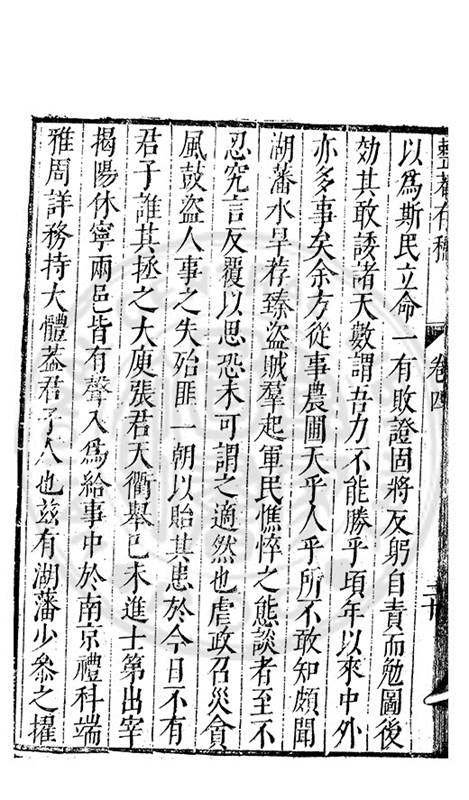 整菴存稿 卷四 二十
以爲斯民立命一有敗證固將反躬自責而勉圖後
効其敢諉諸天數謂吾力不能勝乎頃年以來中外
亦多事矣余方從事農圃天乎人乎所不敢知頗聞
湖藩水旱荐臻盜賊羣起軍民憔悴之態談者至不
忍究言反覆以思恐未可謂之適然也虐政召災貪
風鼓盜人事之失殆匪一朝以貽其患於今日不有
君子誰其拯之大庾張君天衢舉已未進士第出宰
揭陽休寧兩邑皆有聲入爲給事中於南京禮科端
雅周詳務持大體蓋君子人也兹有湖藩少叅之擢